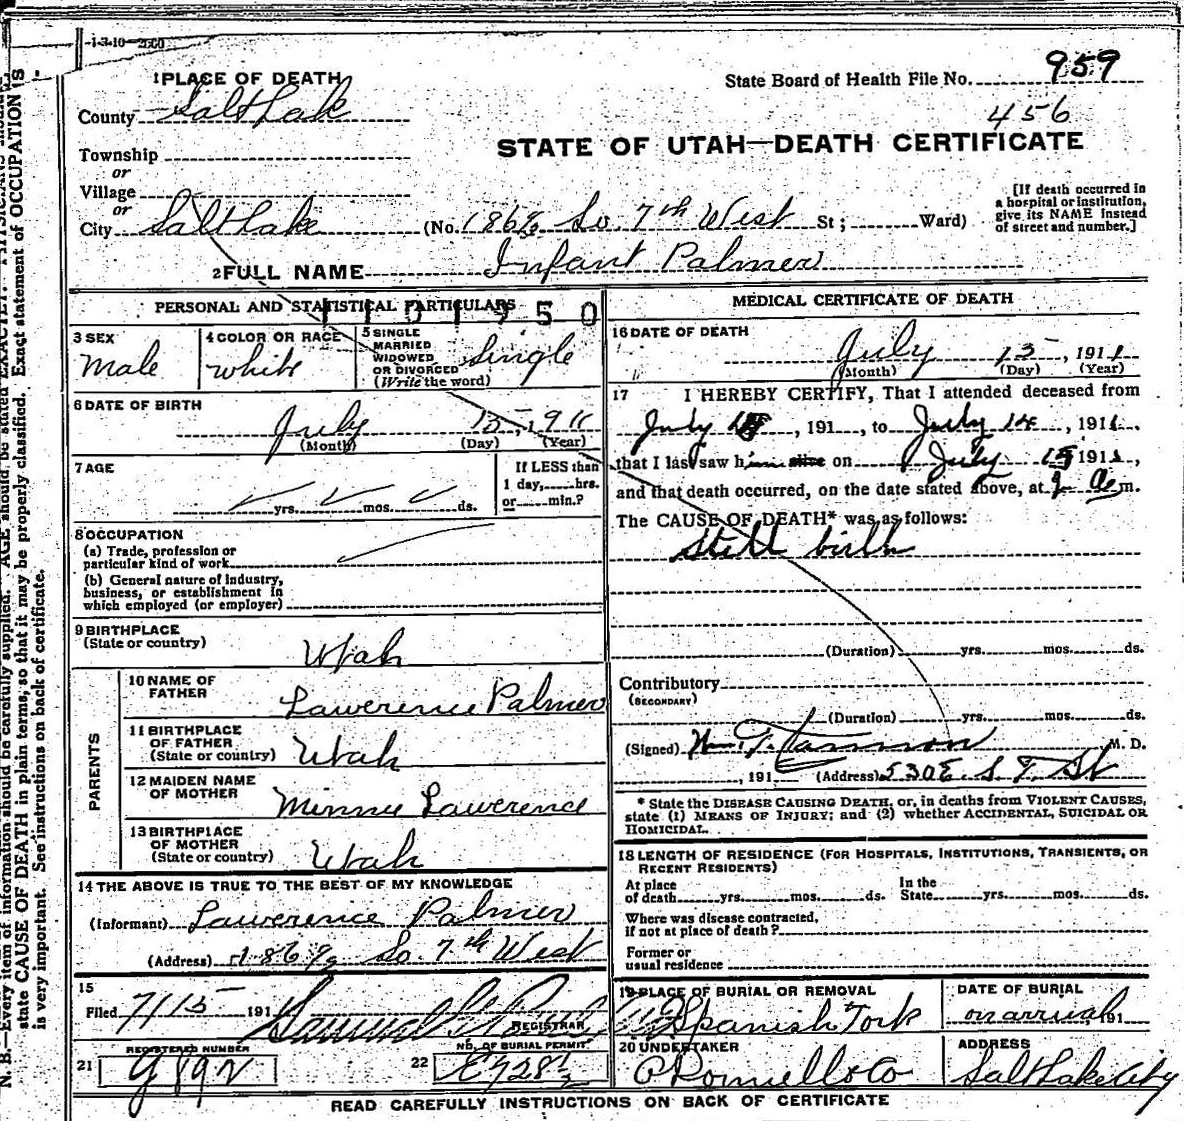 -1-3-10—2500
1 PLACE OF DEATH
State Board of Health File No. 959
County Salt Lake
456
STATE OF UTAH—DEATH CERTIFICATE
Township
or
Village
or
City Salt Lake (No. So. 7th West St; Ward)
[If death occurred in
a hospital or institution,
give its NAME instead
of street and number.]
2 FULL NAME Infant Palmer
PERSONAL AND STATISTICAL PARTICULARS
3 SEX
Male
4 COLOR OR RACE
White
5 SINGLE
MARRIED
WIDOWED
OR DIVORCED
(Write the word)
Single
6 DATE OF BIRTH
July 15, 1911
(Month) (Day) (Year)
7 AGE
yrs. mos. ds.
If LESS than
1 day, hrs.
or min.?
8 OCCUPATION
(a) Trade, profession or
particular kind of work
(b) General nature of industry,
business, or establishment in
which employed (or employer)
9 BIRTHPLACE
(State or country)
Utah
PARENTS
10 NAME OF
FATHER
Lawerence Palmer
11 BIRTHPLACE
OF FATHER
(State or country)
Utah
12 MAIDEN NAME
OF MOTHER
Minnie Lawerence
13 BIRTHPLACE
OF MOTHER
(State or country)
Utah
14 THE ABOVE IS TRUE TO THE BEST OF MY KNOWLEDGE
(Informant) Lawerence Palmer
(Address) So. 7th West
15
Filed 7/15 191
REGISTRAR
REGISTERED NUMBER
21
NO. OF BURIAL PERMIT
22
MEDICAL CERTIFICATE OF DEATH
16 DATE OF DEATH
July 15, 1911
(Month) (Day) (Year)
17 I HEREBY CERTIFY, That I attended deceased from
July , 191 , to July 14, 1911.
that I last saw him alive on July 15 1911,
and that death occurred, on the date stated above, at m.
The CAUSE OF DEATH* was as follows:
Still birth
(Duration) yrs. mos. ds.
Contributory
(SECONDARY)
(Duration) yrs. mos. ds.
(Signed) Wm. T. M. D.
, 191 (Address) 530 E. S. T. St
* State the DISEASE CAUSING DEATH, or, in deaths from VIOLENT CAUSES,
state (1) MEANS OF INJURY; and (2) whether ACCIDENTAL, SUICIDAL OR
HOMICIDAL.
18 LENGTH OF RESIDENCE (FOR HOSPITALS, INSTITUTIONS, TRANSIENTS, OR
RECENT RESIDENTS)
At place
of death yrs. mos. ds.
In the
State yrs. mos. ds.
Where was disease contracted,
if not at place of death?
Former or
usual residence
19 PLACE OF BURIAL OR REMOVAL
Spanish Fork
DATE OF BURIAL
on arrival 191
20 UNDERTAKER
ADDRESS
Salt Lake City
READ CAREFULLY INSTRUCTIONS ON BACK OF CERTIFICATE
N. B.—Every item of information should be carefully supplied. AGE should be stated EXACTLY. PHYSICIANS should
state CAUSE OF DEATH in plain terms, so that it may be properly classified. Exact statement of OCCUPATION is
is very important. See instructions on back of certificate.